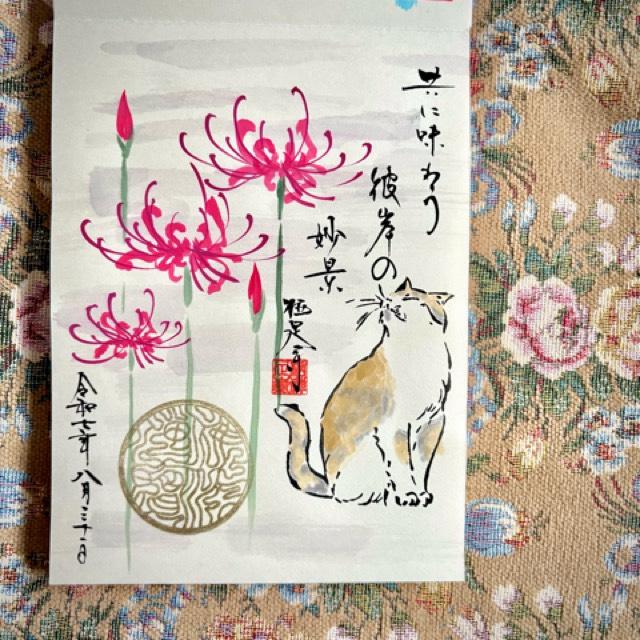 共に味わう
彼岸の
妙景
令和七年八月三十日